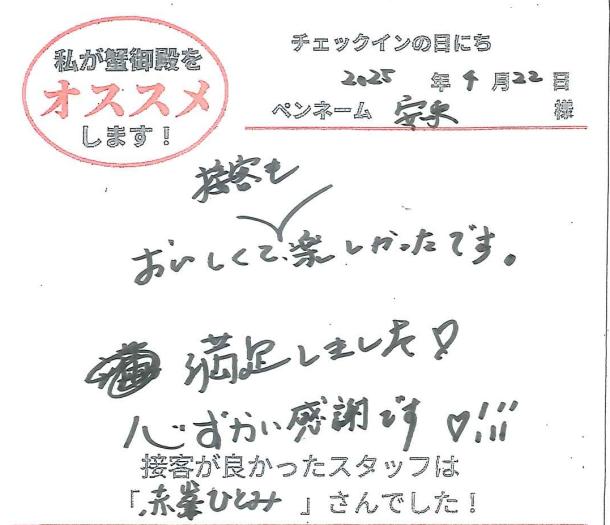 私が蟹御殿を
オススメ
します！
チェックインの日にち
2025 年 4 月 22 日
ペンネーム 様
接客も
おいしくて、楽しかったです。
満足しました♡
心づかい感謝です♡!!!
接客が良かったスタッフは
「赤峯ひとみ」さんでした！